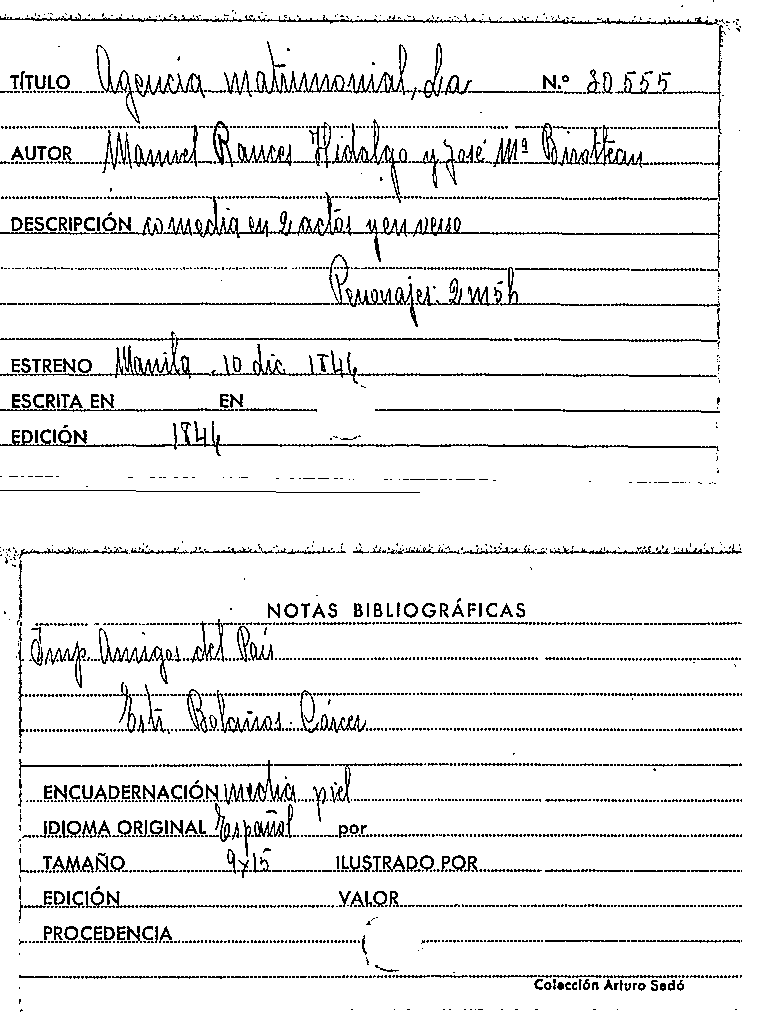 TÍTULO Agencia matrimonial, La N.º 80555
AUTOR Manuel Rances Hidalgo y José Mª Birotteau
DESCRIPCIÓN comedia en 2 actos y en verso
Personajes: 2 m 5 h
ESTRENO Manila . 10 dic 1846
ESCRITA EN EN
EDICIÓN 1846
NOTAS BIBLIOGRÁFICAS
Imp. Amigos del País
Estr. Bolaños. Cárcer
ENCUADERNACIÓN media piel
IDIOMA ORIGINAL Español por
TAMAÑO 9x15 ILUSTRADO POR
EDICIÓN VALOR
PROCEDENCIA
Colección Arturo Sedó